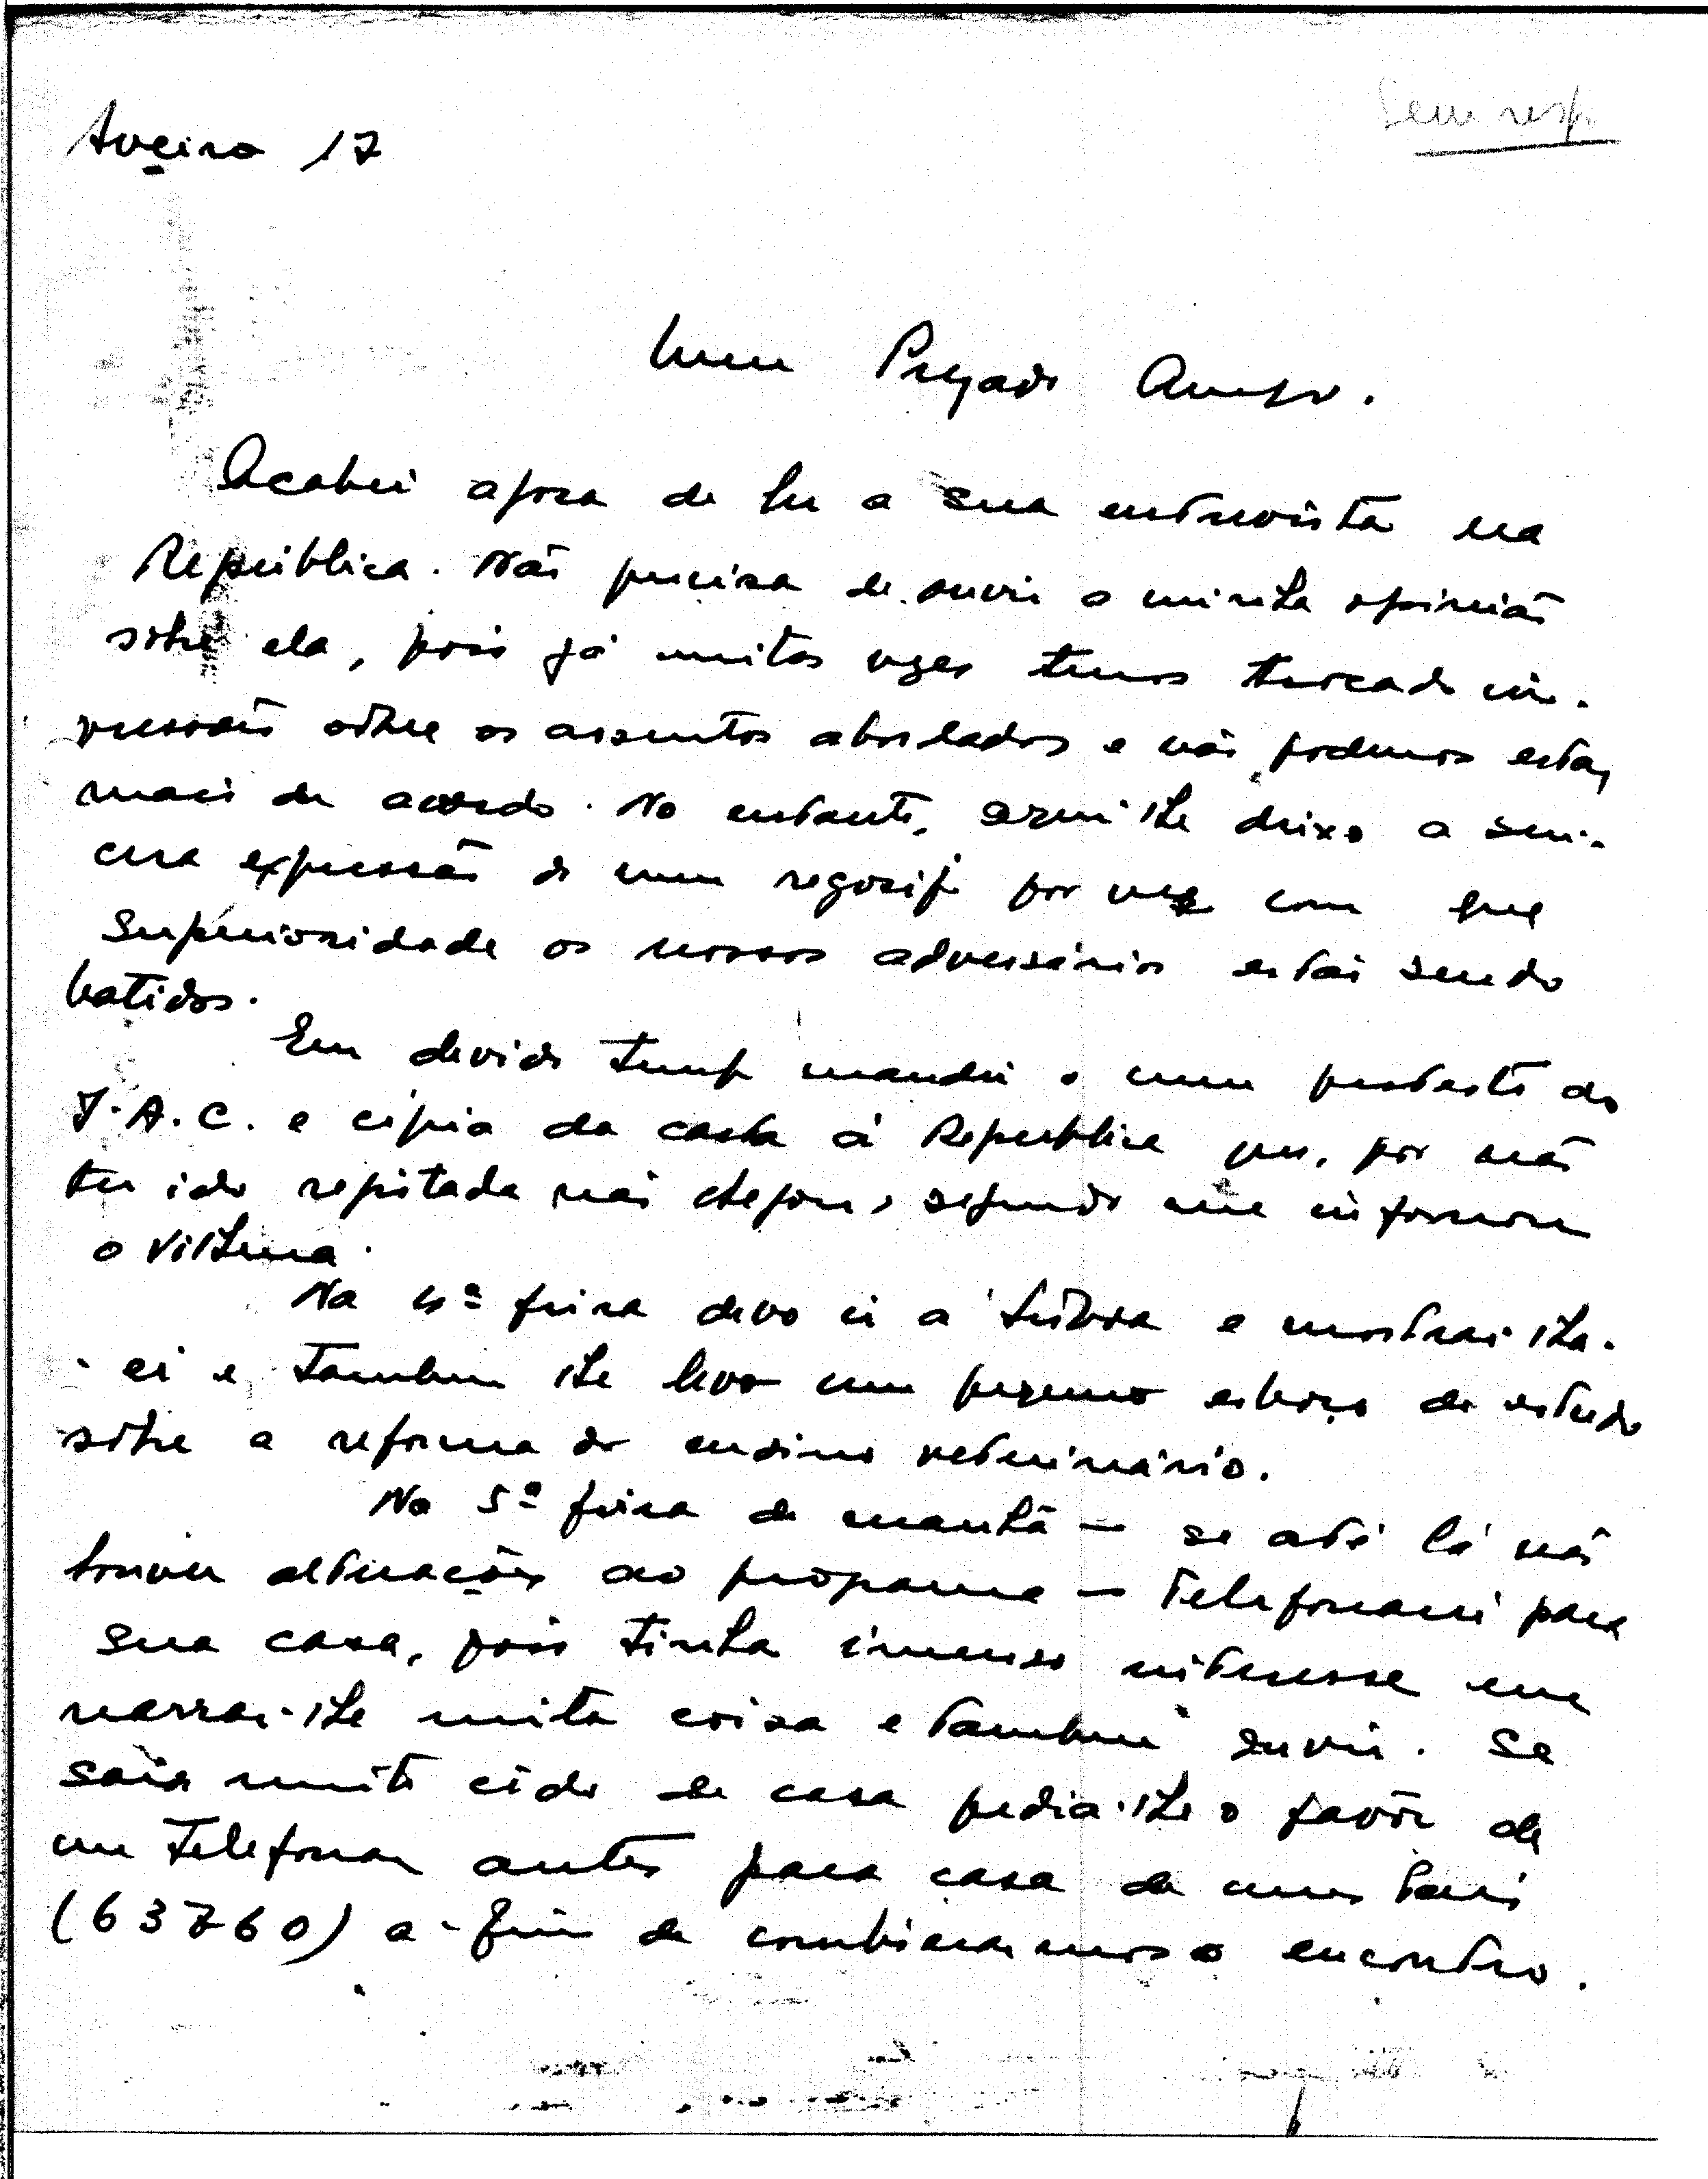 Sem resp.
Aveiro 17
Meu Prezado Amigo.
Acabei agora de ler a sua entrevista na
República. Não precisa de ouvir a minha opinião
sôbre ela, pois já muitas vezes temos trocado im-
pressões sôbre os assuntos abordados e não podemos estar
mais de acordo. No entanto, aqui lhe deixo a sin-
cera expressão do meu regosijo por ver com que
superioridade os nossos adversários estão sendo
batidos.
Em devido tempo mandei o meu protesto ao
J.A.C. e cópia da carta à República que, por não
ter ido registada não chegou, segundo me informou
o Vilhena.
Na 4ª feira devo ir a Lisboa e mostrar-lha-
-ei e tambem lhe levo um pequeno esboço de estudo
sôbre a reforma do ensino veterinário.
Na 5ª feira de manhã — se até lá não
houver alterações ao programa — telefonarei para
sua casa, pois tinha imenso interesse em
narrar-lhe muita coisa e tambem ouvir. Se
sair muito cêdo de casa pedia-lhe o favôr de
me telefonar antes para casa de meus
(63760) a-fim de combinarmos o encontro.